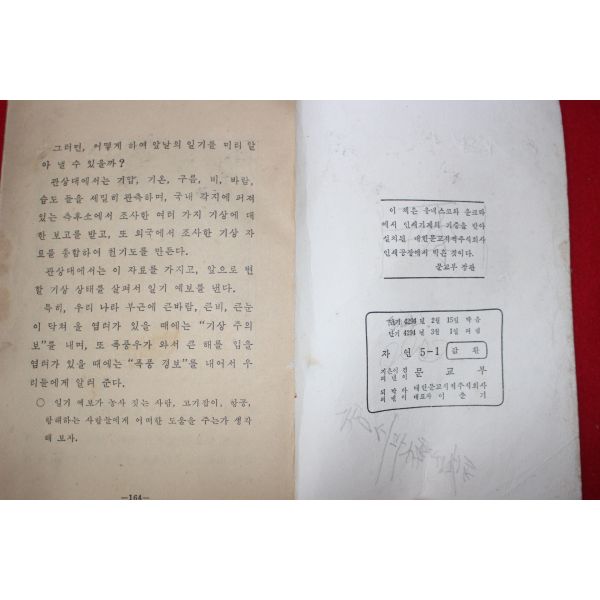 그러면, 어떻게 하여 앞날의 일기를 미리 알
아 낼 수 있을까?
관상대에서는 기압, 기온, 구름, 비, 바람,
습도 들을 세밀히 관측하며, 국내 각지에 퍼져
있는 측후소에서 조사한 여러 가지 기상에 대
한 보고를 받고, 또 외국에서 조사한 기상 자
료를 종합하여 천기도를 만든다.
관상대에서는 이 자료를 가지고, 앞으로 변
할 기상 상태를 살펴서 일기 예보를 낸다.
특히, 우리 나라 부근에 큰바람, 큰비, 큰눈
이 닥쳐 올 염려가 있을 때에는 “기상 주의
보”를 내며, 또 폭풍우가 와서 큰 해를 입을
염려가 있을 때에는 “폭풍 경보”를 내어서 우
리들에게 알려 준다.
○ 일기 예보가 농사 짓는 사람, 고기잡이, 항공,
항해하는 사람들에게 어떠한 도움을 주는가 생각
해 보자.
—164—
이 책은 유네스코와 운크라
에서 인쇄기계의 기증을 받아
설치된 대한문교서적주식회사
인쇄공장에서 박은 것이다.
문교부 장관
단기 4294 년 2월 15일 박음
단기 4294 년 3월 1일 펴냄
자연 5-1 값 환
지은이 겸
펴낸이 문교부
되박아
펴냄이 대한문교서적주식회사
대표자 이